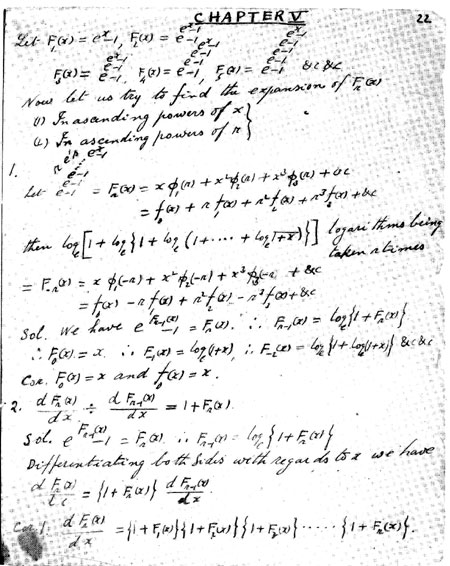 CHAPTER V 22
Let F₁(x) = e^x−1, F₂(x) = e^{e^x−1}−1,
F₃(x) = e^{e^{e^x−1}−1}−1, F₄(x) = e^{e^{e^{e^x−1}−1}−1}−1, F₅(x) = e^{e^{e^{e^{e^x−1}−1}−1}−1}−1 &c &c
Now let us try to find the expansion of F_r(x)
(1) In ascending powers of x }
(2) In ascending powers of r }
1.
Let e^{e^{e^x−1}−1}−1 = F_r(x) = x φ₁(r) + x² φ₂(r) + x³ φ₃(r) + &c
= f₀(x) + r f₁(x) + r² f₂(x) + r³ f₃(x) + &c
then log_e[1 + log_e{1 + log_e(1 + ⋯ + log_e 1+x)}] logarithms being
taken r times
= F₋ᵣ(x) = x φ₁(−r) + x² φ₂(−r) + x³ φ₃(−r) + &c
= f₀(x) − r f₁(x) + r² f₂(x) − r³ f₃(x) + &c
Sol. We have e^{F_{r−1}(x)} − 1 = F_r(x). ∴ F_{r−1}(x) = log_e{1 + F_r(x)}
∴ F₀(x) = x. ∴ F₋₁(x) = log_e(1+x), ∴ F₋₂(x) = log_e{1 + log_e(1+x)} &c &c
Cor. F₀(x) = x and f₀(x) = x.
2. d F_r(x)/dx ÷ d F_{r−1}(x)/dx = 1 + F_r(x).
Sol. e^{F_{r−1}(x)} − 1 = F_r(x) ∴ F_{r−1}(x) = log_e{1 + F_r(x)}
Differentiating both sides with regards to x we have
d F_r(x)/dx = {1 + F_r(x)} d F_{r−1}(x)/dx
Cor 1. d F_r(x)/dx = {1 + F₁(x)}{1 + F₂(x)}{1 + F₃(x)} ⋯⋯ {1 + F_r(x)}.